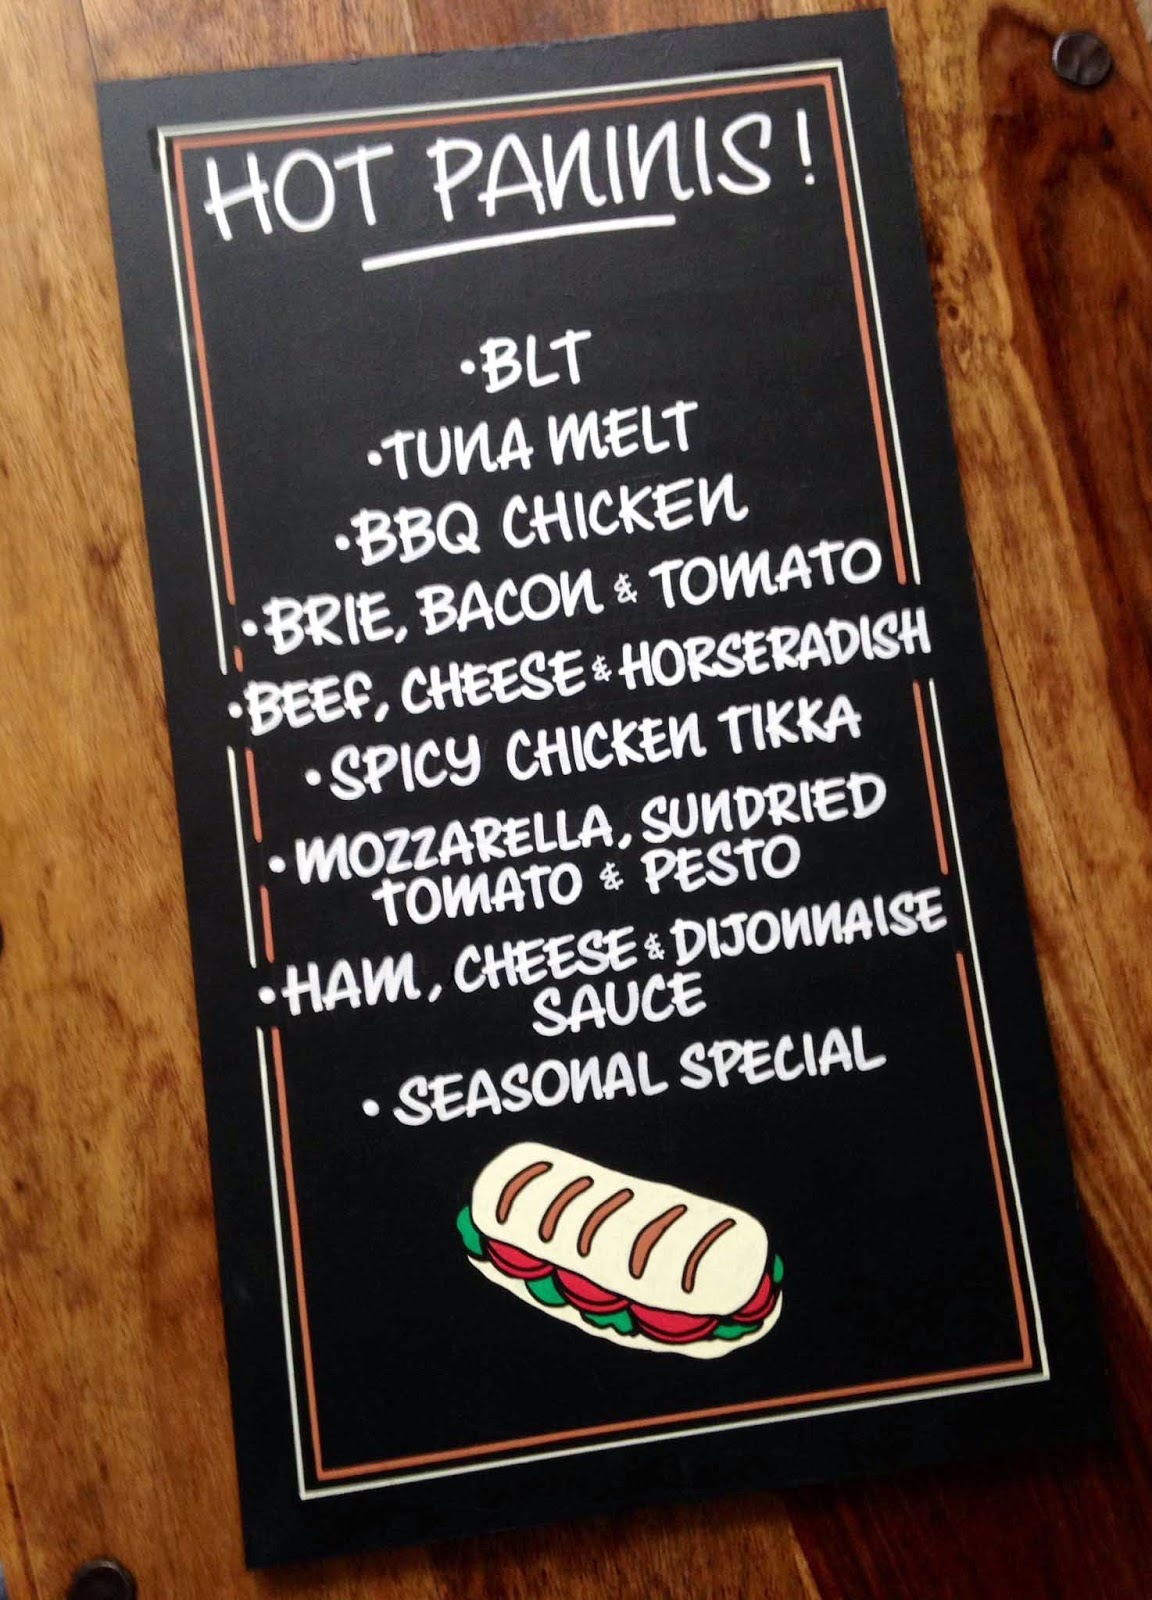 HOT PANINIS!
•BLT
•TUNA MELT
•BBQ CHICKEN
•BRIE, BACON & TOMATO
•BEEF, CHEESE & HORSERADISH
•SPICY CHICKEN TIKKA
•MOZZARELLA, SUNDRIED
TOMATO & PESTO
•HAM, CHEESE & DIJONNAISE
SAUCE
•SEASONAL SPECIAL